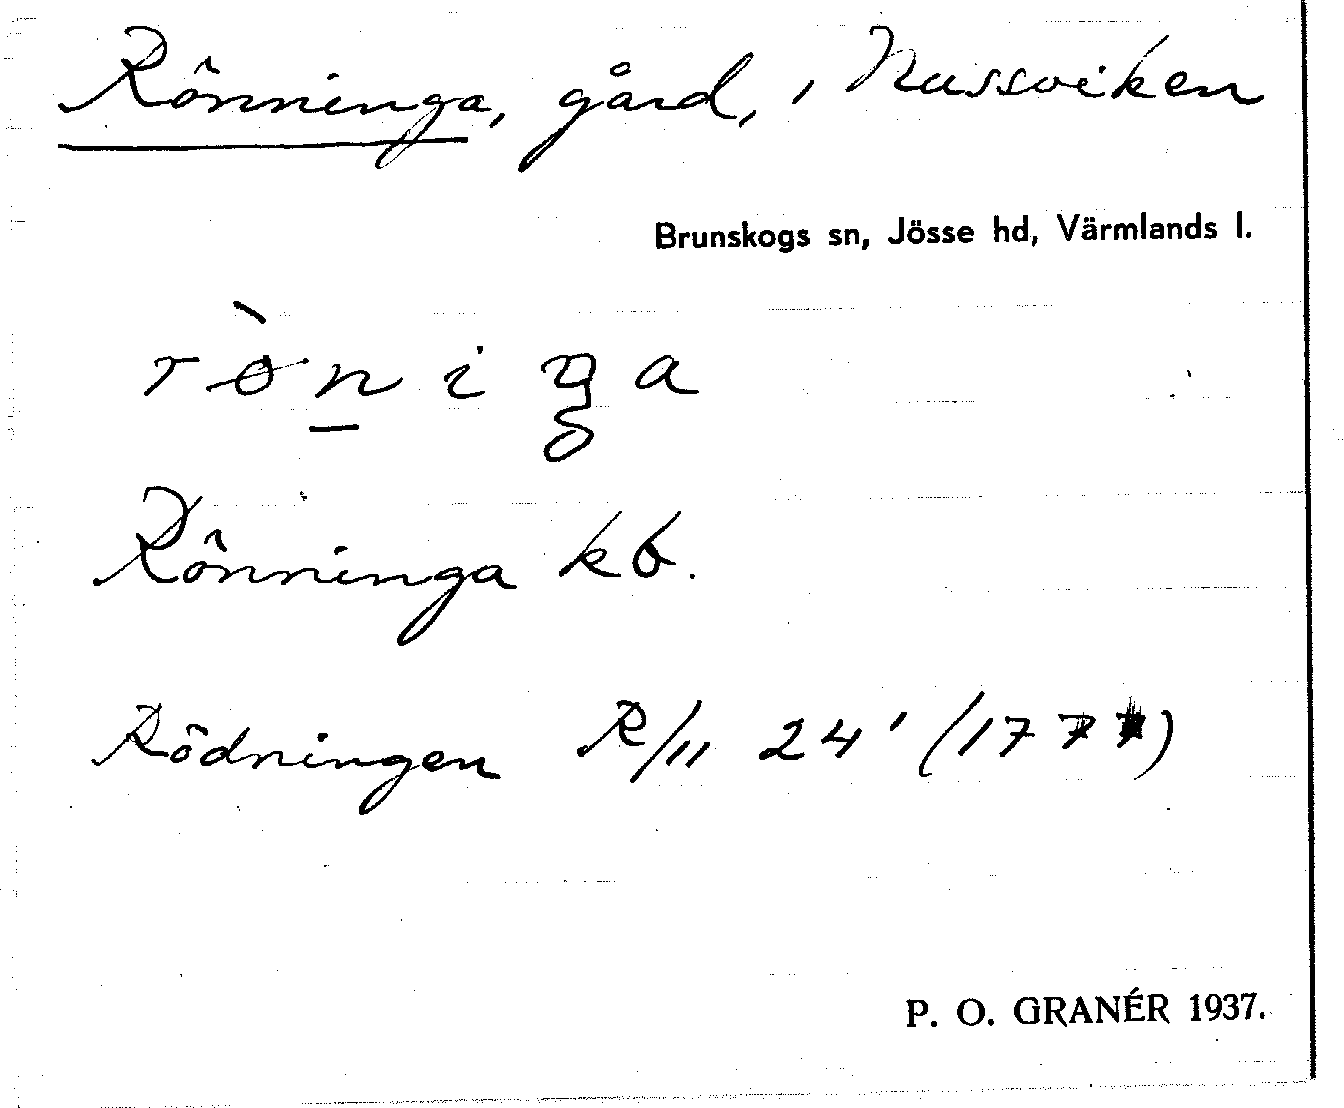 Rönninga, gård, i Nussviken
Brunskogs sn, Jösse hd, Värmlands l.
rø̀n̲iŋa
Rönninga kb.
Rödningen R/11 24' (177
P. O. GRANÉR 1937.